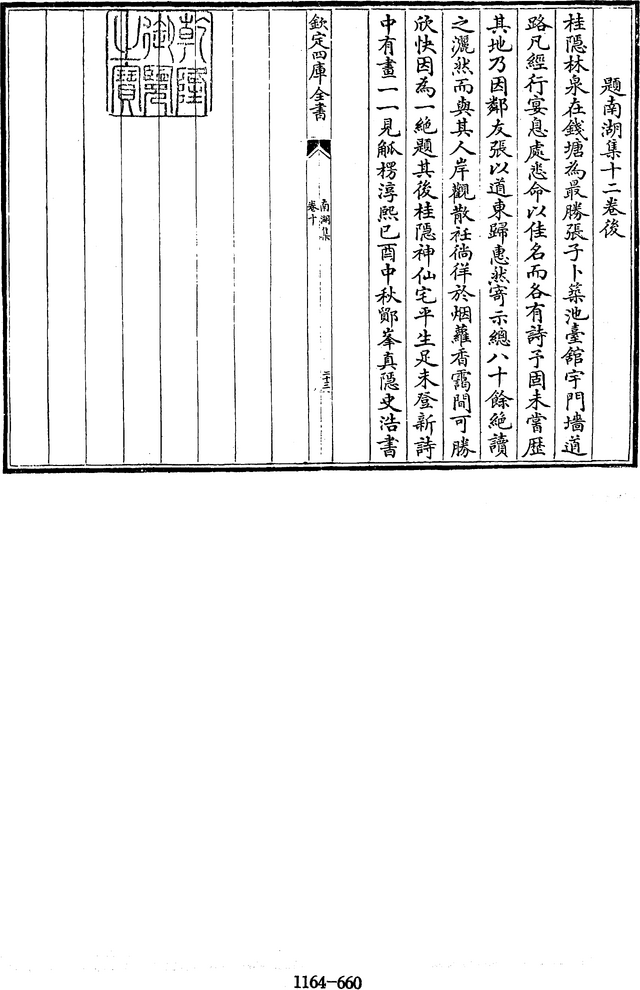 題南湖集十二卷後
桂隱林泉在錢塘為最勝張子卜築池臺館宇門墻道
路凡經行宴息處悉命以佳名而各有詩予固未嘗歷
其地乃因鄰友張以道東歸惠然寄示總八十餘絶讀
之灑然而與其人岸觀散袵徜徉於烟蘿香靄間可勝
欣快因為一絶題其後桂隱神仙宅平生足未登新詩
中有畫一一見觚楞淳熙己酉中秋鄮峯真隱史浩書
欽定四庫全書
南湖集
卷十
三十三
乾隆
御覽
之寶
1164-660